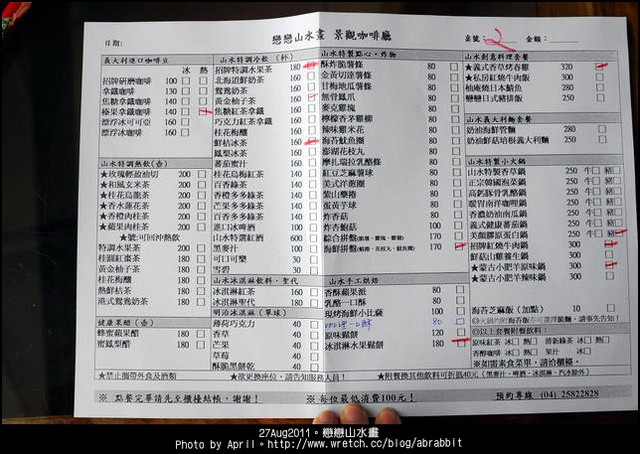 戀戀山水畫 景觀咖啡廳
日期:
桌號: 2 金額:
義大利進口咖啡豆
冰 熱
招牌研磨咖啡 100
拿鐵咖啡 130
焦糖拿鐵咖啡 140
榛果拿鐵咖啡 140
漂浮冰可可亞 160
漂浮冰咖啡 160
山水特調熱飲(壺)
★玫瑰輕盈油切 200
★和風玄米茶 200
★桂花烏龍茶 200
★香水蓮花茶 200
★香橙肉桂茶 200
★蘋果肉桂茶 200
★號:可回沖熱飲
特調水果茶 200
桂圓紅棗茶 180
黃金柚子茶 180
桂花梅釀 180
熱鮮奶茶 180
港式鴛鴦奶茶 180
健康果醋(壺)
蜂蜜蘋果醋 180
蜜鳳梨醋 180
山水特調冷飲(杯)
招牌特調水果茶 180
北海道鮮奶茶 160
鴛鴦奶茶 160
黃金柚子茶 160
焦糖紅茶拿鐵 160
巧克力紅茶拿鐵 160
桂花梅釀 160
鮮桔冰茶 160
鳳梨冰茶 160
蕃茄蜜汁 160
桂花烏龍紅茶 140
百香綠茶 140
香橙多多綠茶 140
芒果多多綠茶 140
百香多多綠茶 140
進口冰啤酒 100
山水特選紅酒 600
黑麥汁 100
可口可樂 30
雪碧 30
山水冰淇淋飲料、聖代
冰淇淋紅茶 160
冰淇淋聖代 180
明治冰淇淋(單球)
薄荷巧克力 40
香草 40
芒果 40
草莓 40
酥脆黑餅乾 40
山水特製點心、炸物
酥炸脆薯條 80
金黃切達薯條 80
甘梅地瓜薯條 80
無骨鳳爪 80
麥克雞塊 80
檸檬香茅雞柳 80
鹹味雞米花 80
海苔魷魚圈 80
澎湖花枝丸 80
摩扎瑞拉乳酪條 80
紅豆芝麻薯球 80
美式洋蔥圈 80
紫山藥捲 80
蛋黃芋球 80
炸杏菇 80
炸杏鮑菇 100
綜合拼盤 170
海鮮拼盤 170
山水手工烘焙
香酥蘋果派 80
乳酪一口酥 80
現烤海鮮小比薩 100
80
原味鬆餅 120
冰淇淋水果鬆餅 180
山水創意料理套餐
★義式香草烤春雞 320
★私房紅燒牛肉飯 300
柚庵燒日本鯖魚 280
戀戀日式豬排飯 250
山水義大利麵套餐
奶油海鮮管麵 280
奶油鮮菇培根義大利麵 250
山水特製小火鍋
山水特製香草鍋 250 牛 豬
正宗韓國泡菜鍋 250 牛 豬
高鈣豚骨乳酪鍋 250 牛 豬
暖胃南洋咖哩鍋 250 牛 豬
香濃奶油南瓜鍋 250 牛 豬
義式健康蕃茄鍋 250 牛 豬
美顏膠原蛋白鍋 250 牛 豬
招牌紅燒牛肉鍋 300
鮮菇山藥養生鍋 300
★蒙古小肥羊原味鍋 300
★蒙古小肥羊辣味鍋 300
海苔芝麻飯(加點) 10
◎以上套餐附餐飲料:
原味紅茶 冰 熱 清新綠茶 冰 熱
香醇咖啡 冰 熱 果汁 冰
※如需素食菜單,請洽櫃檯。
★禁止攜帶外食及酒類 ★欲更換座位,請告知服務人員! ★附餐換其他飲料可折抵40元(黑麥汁、啤酒、冰淇淋、汽水除外)
※ 點餐完畢請先至櫃檯結帳,謝謝! ※每位最低消費100元! 預約專線 (04) 25822828
27Aug2011。戀戀山水畫
Photo by April。http://www.wretch.cc/blog/abrabbit